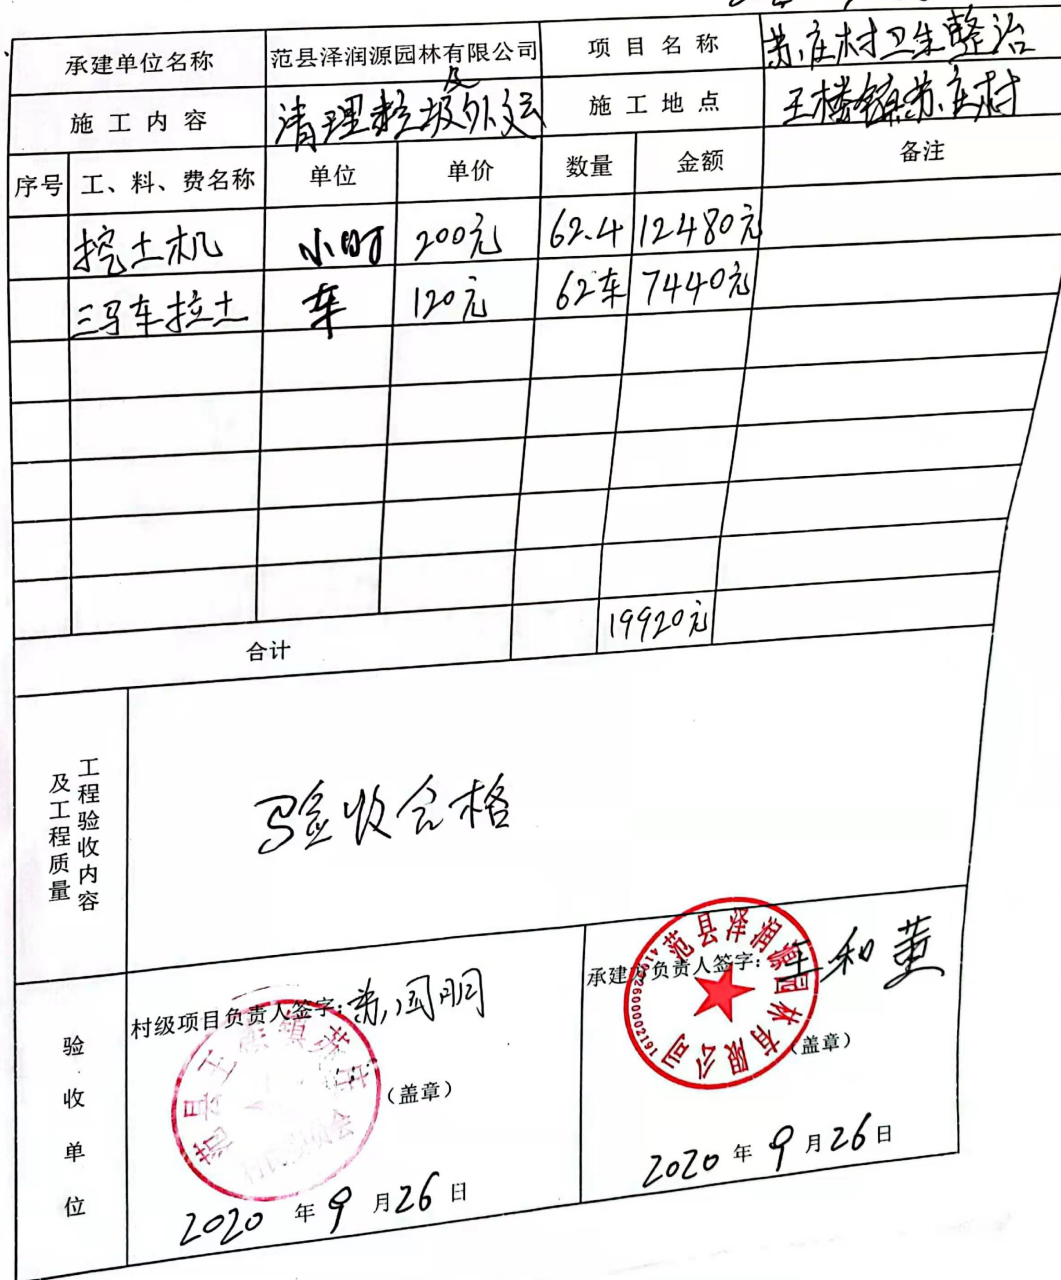 承建单位名称 范县泽润源园林有限公司 项目名称 苏庄村卫生整治
施工内容 清理垃圾及外运 施工地点 王楼镇苏庄村
序号 工、料、费名称 单位 单价 数量 金额 备注
挖土机 小时 200元 62.4 12480元
三马车拉土 车 120元 62车 7440元
合计 19920元
工程验收内容
及工程质量
验收合格
验收单位
村级项目负责人签字：苏国
（盖章）
2020年9月26日
承建方负责人签字：王和
范县泽润源园林有限公司
（盖章）
2020年9月26日
范县王楼镇苏庄